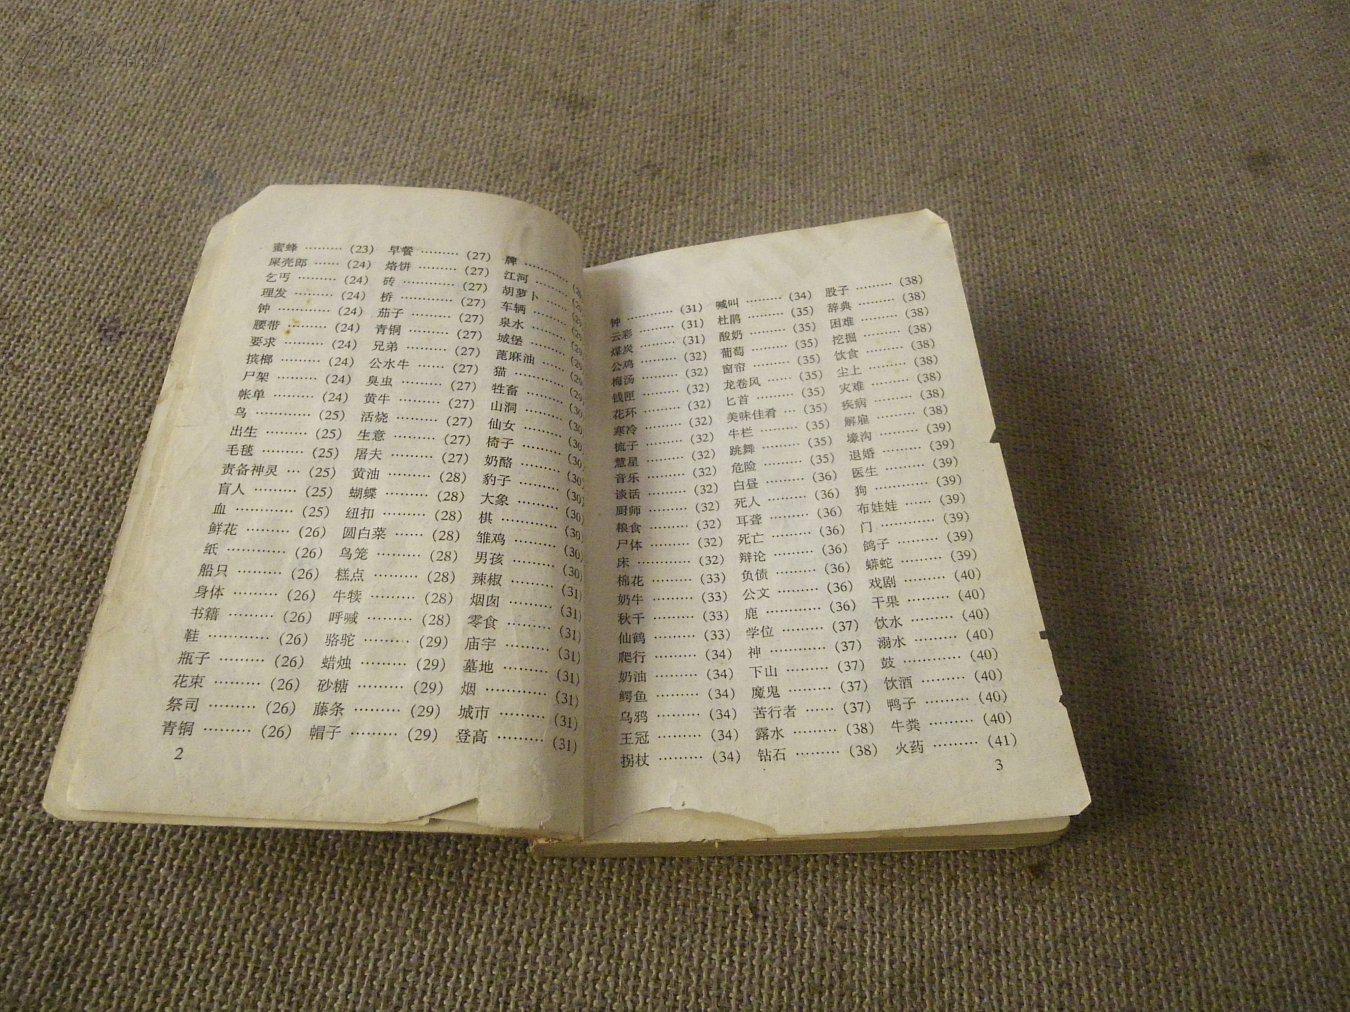 蜜蜂 ……… (23)
屎壳郎 …… (24)
乞丐 ……… (24)
理发 ……… (24)
钟 ………… (24)
腰带 ……… (24)
要求 ……… (24)
槟榔 ……… (24)
尸架 ……… (24)
帐单 ……… (24)
鸟 ………… (25)
出生 ……… (25)
毛毯 ……… (25)
责备神灵 … (25)
盲人 ……… (25)
血 ………… (25)
鲜花 ……… (26)
纸 ………… (26)
船只 ……… (26)
身体 ……… (26)
书籍 ……… (26)
鞋 ………… (26)
瓶子 ……… (26)
花束 ……… (26)
祭司 ……… (26)
青铜 ……… (26)
早餐 ……… (27)
烙饼 ……… (27)
砖 ………… (27)
桥 ………… (27)
茄子 ……… (27)
青铜 ……… (27)
兄弟 ……… (27)
公水牛 …… (27)
臭虫 ……… (27)
黄牛 ……… (27)
活烧 ……… (27)
生意 ……… (27)
屠夫 ……… (27)
黄油 ……… (28)
蝴蝶 ……… (28)
纽扣 ……… (28)
圆白菜 …… (28)
鸟笼 ……… (28)
糕点 ……… (28)
牛犊 ……… (28)
呼喊 ……… (28)
骆驼 ……… (29)
蜡烛 ……… (29)
砂糖 ……… (29)
藤条 ……… (29)
帽子 ……… (29)
牌 …………
江河 ………
胡萝卜 ……
车辆 ………
泉水 ………
城堡 ………
蓖麻油 ……
猫 …………
牲畜 ………
山洞 ……… (30
仙女 ……… (30
椅子 ……… (30
奶酪 ……… (30
豹子 ……… (30
大象 ……… (30
棋 ………… (30
雏鸡 ……… (30
男孩 ……… (30
辣椒 ……… (31)
烟囱 ……… (31)
零食 ……… (31)
庙宇 ……… (31)
墓地 ……… (31)
烟 ………… (31)
城市 ……… (31)
登高 ……… (31)
2
钟 ………… (31)
云彩 ……… (31)
煤炭 ……… (31)
公鸡 ……… (32)
梅汤 ……… (32)
钱匣 ……… (32)
花环 ……… (32)
寒冷 ……… (32)
梳子 ……… (32)
慧星 ……… (32)
音乐 ……… (32)
谈话 ……… (32)
厨师 ……… (32)
粮食 ……… (32)
尸体 ……… (32)
床 ………… (32)
棉花 ……… (33)
奶牛 ……… (33)
秋千 ……… (33)
仙鹤 ……… (33)
爬行 ……… (34)
奶油 ……… (34)
鳄鱼 ……… (34)
乌鸦 ……… (34)
王冠 ……… (34)
拐杖 ……… (34)
喊叫 ……… (34)
杜鹃 ……… (35)
酸奶 ……… (35)
葡萄 ……… (35)
窗帘 ……… (35)
龙卷风 …… (35)
匕首 ……… (35)
美味佳肴 … (35)
牛栏 ……… (35)
跳舞 ……… (35)
危险 ……… (35)
白昼 ……… (36)
死人 ……… (36)
耳聋 ……… (36)
死亡 ……… (36)
辩论 ……… (36)
负债 ……… (36)
公文 ……… (36)
鹿 ………… (36)
学位 ……… (37)
神 ………… (37)
下山 ……… (37)
魔鬼 ……… (37)
苦行者 …… (37)
露水 ……… (38)
钻石 ……… (38)
股子 ……… (38)
辞典 ……… (38)
困难 ……… (38)
挖掘 ……… (38)
饮食 ……… (38)
尘上 ……… (38)
灾难 ……… (38)
疾病 ……… (38)
解雇 ……… (38)
壕沟 ……… (39)
退婚 ……… (39)
医生 ……… (39)
狗 ………… (39)
布娃娃 …… (39)
门 ………… (39)
鸽子 ……… (39)
蟒蛇 ……… (39)
戏剧 ……… (40)
干果 ……… (40)
饮水 ……… (40)
溺水 ……… (40)
鼓 ………… (40)
饮酒 ……… (40)
鸭子 ……… (40)
牛粪 ……… (40)
火药 ……… (41)
3